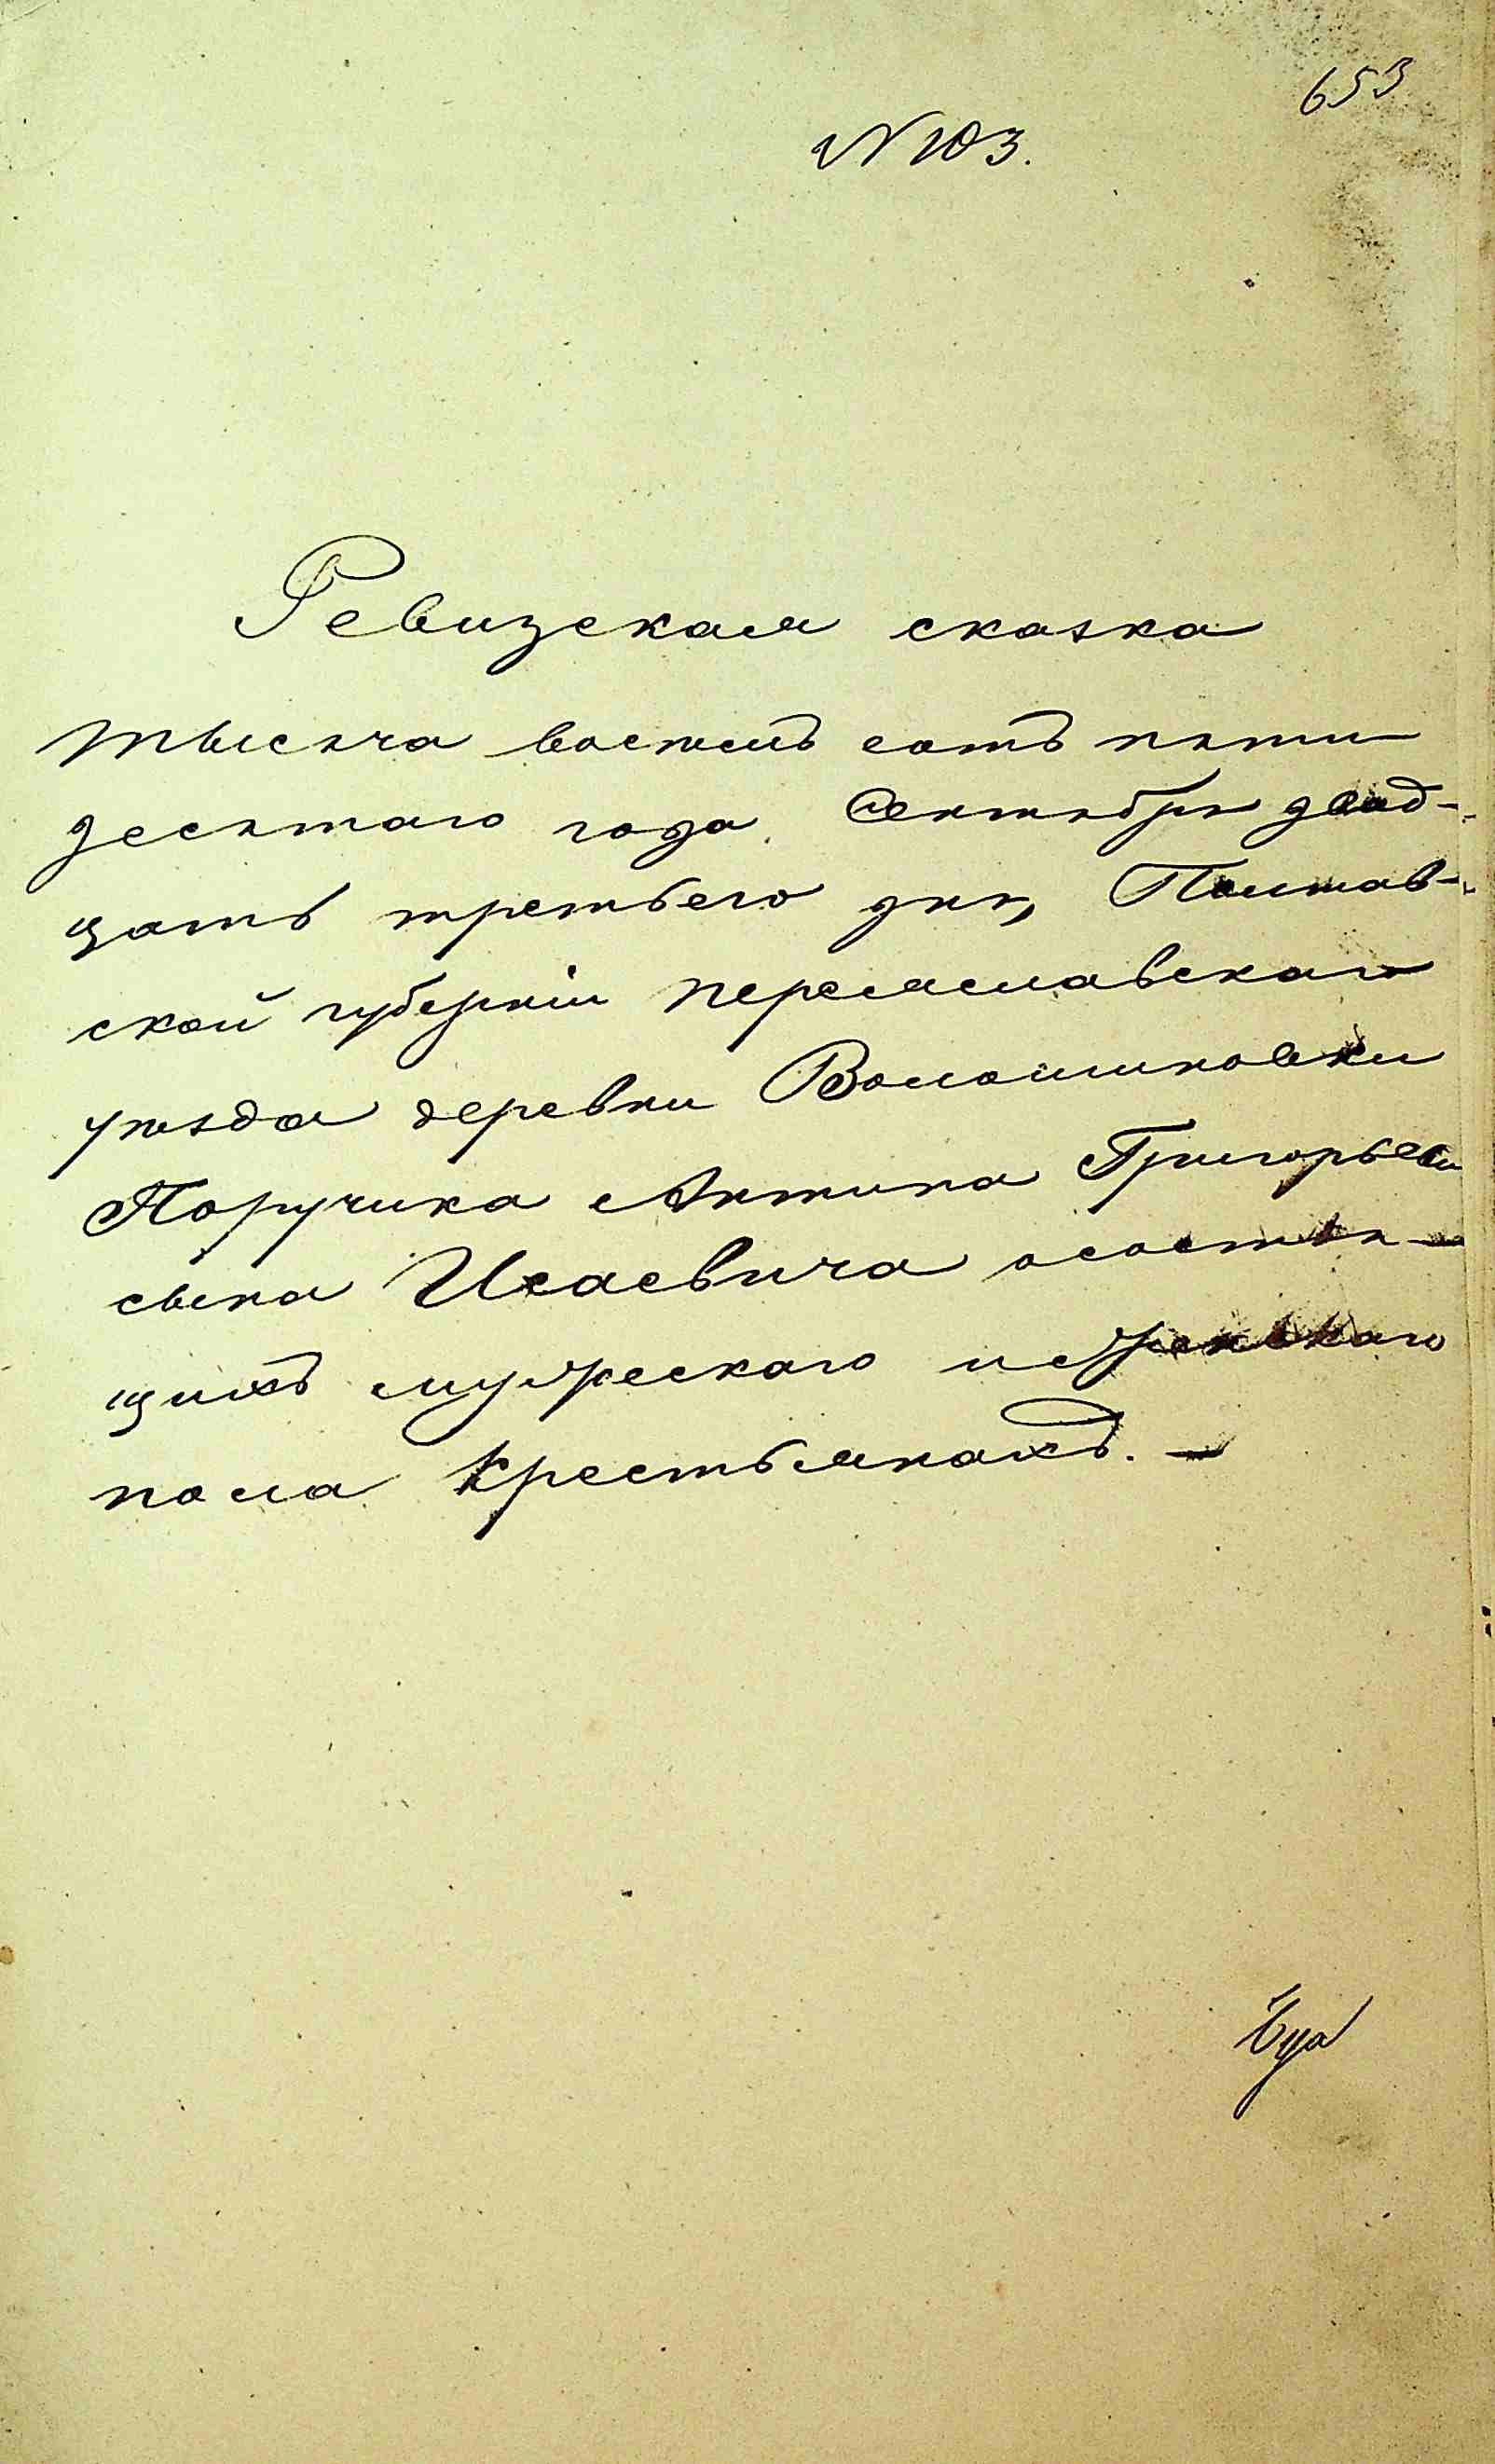 653
N 103.
Ревизская сказка
тысяча восемъ сотъ пяти
десятаго года Сентября двад-
цать третьего дня, Полтав-
ской губерніи переяславскаго
уѣзда деревни Волошиновки
Поручика Антипа Григорьева
сына Исаевича осостоя-
щихъ мужескаго и женскаго
пола крестьянахъ. —